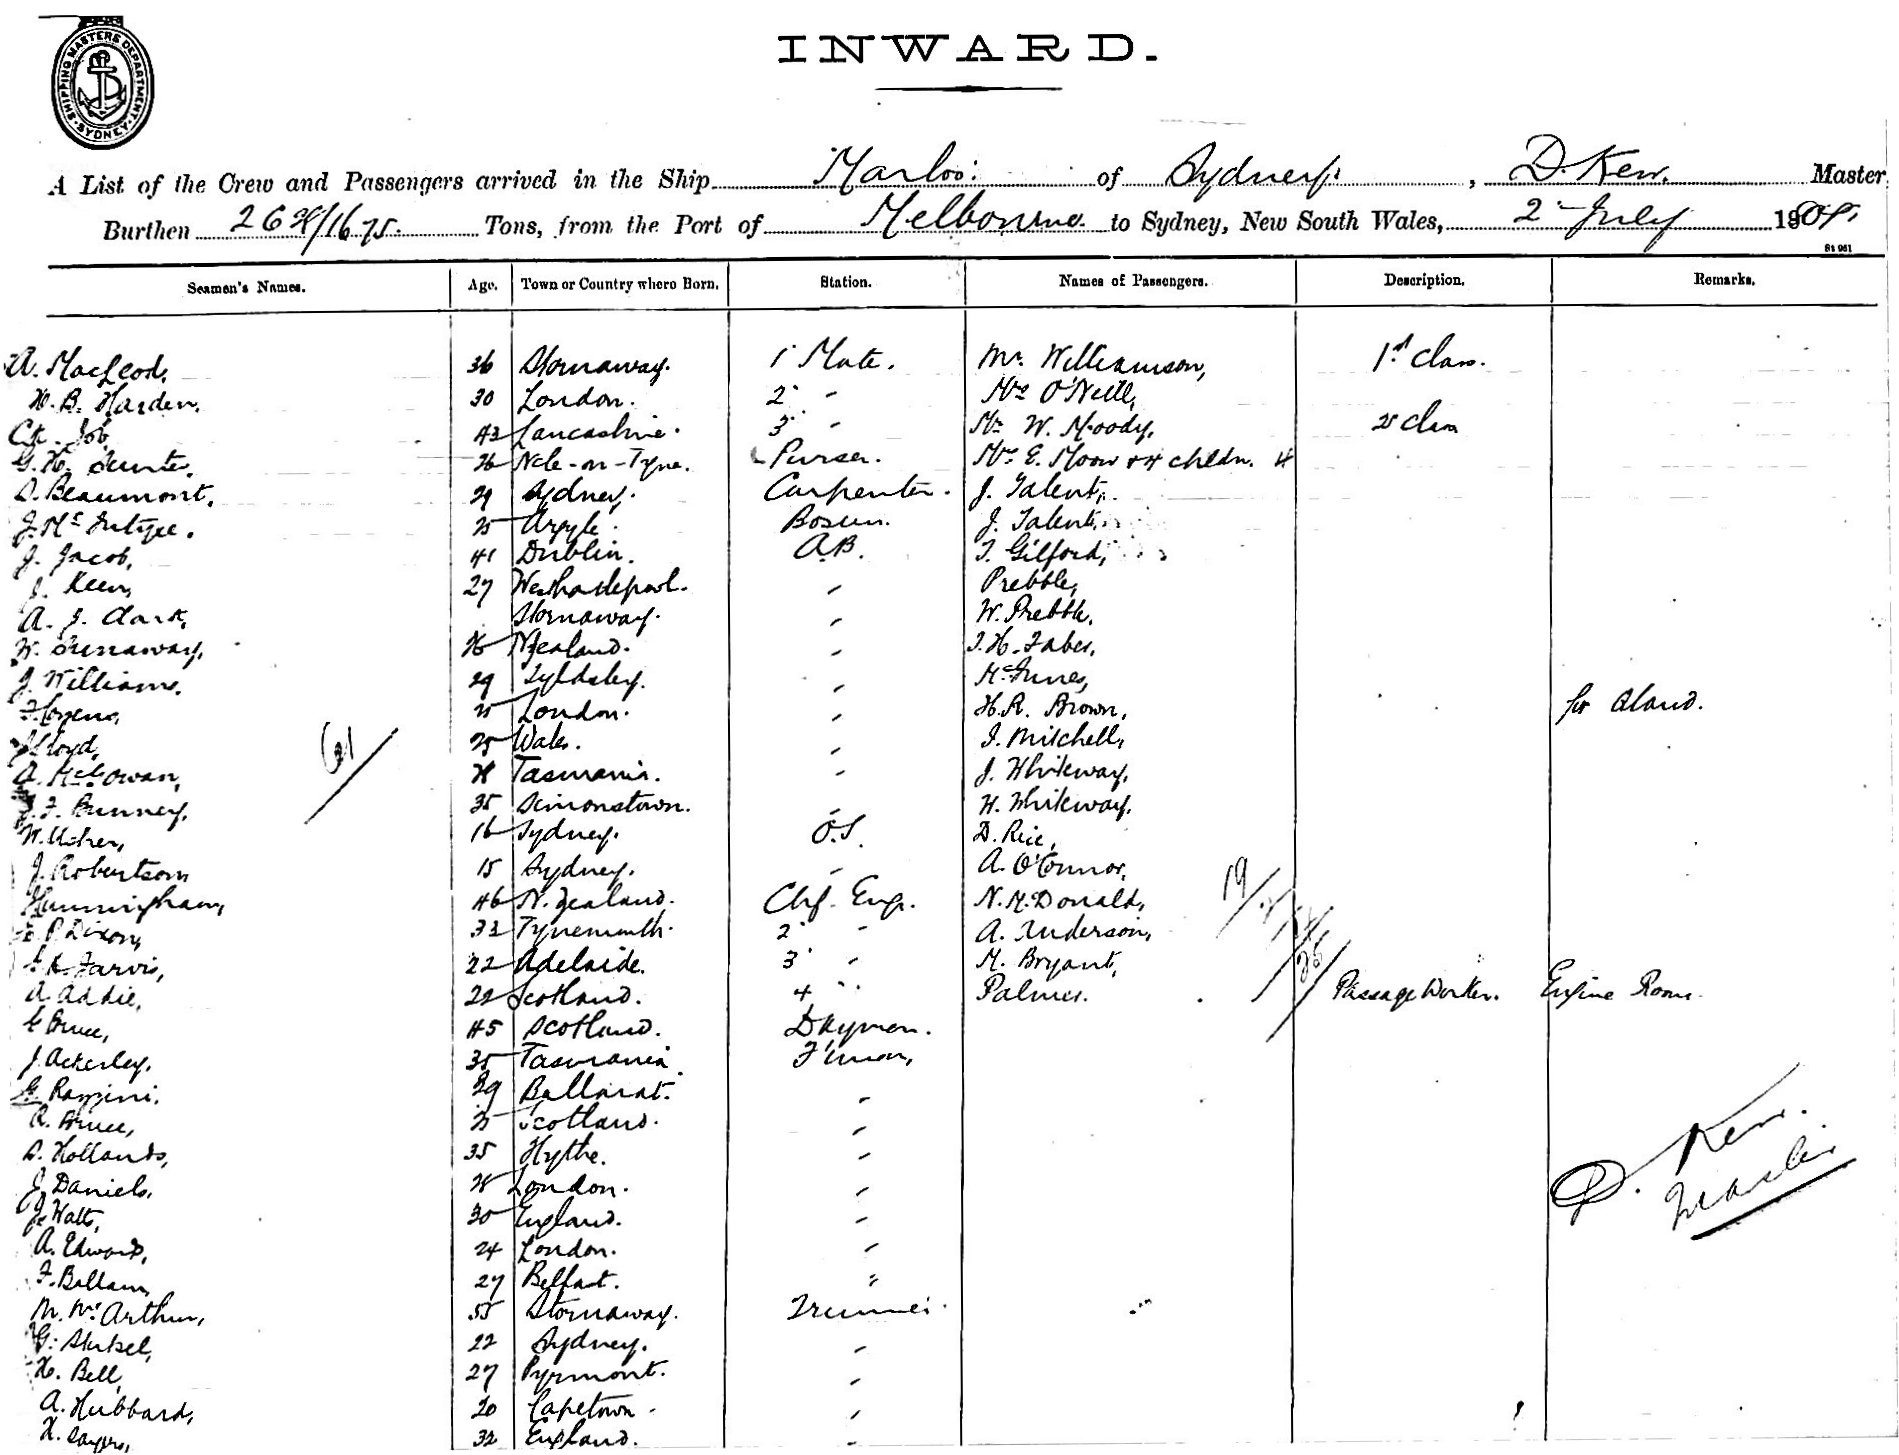 SHIPPING MASTERS DEPARTMENT. SYDNEY
INWARD.
A List of the Crew and Passengers arrived in the Ship Marloo. of Sydney. , D. Kew. Master
Burthen Tons, from the Port of Melbourne to Sydney, New South Wales, 2 July
Seamen's Names. Age. Town or Country where Born. Station. Names of Passengers. Description. Remarks.
A. MacLeod, 36 Stornaway. 1 Mate. Mr. Williamson, 1st Class.
H. B. Harden. 30 London. 2 " Mrs O'Neill,
Job 43 Lancashire. 3 " Mr W. Moody, 2 Class
G. H. Ncle-on-Tyne. Purser. Mrs E. Moore & 4 childn. 4
D. Beaumont, 29 Sydney. Carpenter. J. Talent,
J. McIntyre. 25 Argyle. Bosun. J. Talent,
J. Jacob, 41 Dublin. A.B. T. Gilford,
J. Keen, 27 Westhartlepool. " Prebble,
A. J. Clark, Stornaway. " W. Prebble,
W. N Zealand. " T. H. Faber,
J. Williams. 29 Tyldsley. " McInnes,
25 London. " H. R. Brown, for Aland.
Lloyd, 25 Wales. " I. Mitchell,
A. McCowan, Tasmania. " J. Whiteway,
61
J. F. Bunney, 35 Simonstown. " H. Whiteway,
W. Usher, 16 Sydney. O.S. D. Rice,
J. Robertson 15 Sydney. " A. O'Connor,
46 N. Zealand. Chf. Eng. N. McDonald, 19
P. Dixon, 33 Tynemouth. 2 " A. Anderson,
Jarvis, 22 Adelaide. 3 " M. Bryant,
A. Addie, 22 Scotland. 4 " Palmer. Passage Worker. Engine Room.
Bruce, 45 Scotland. Dkyman.
J. Ackerley, 35 Tasmania F'man,
G. Razzini. 29 Ballarat. "
R. Bruce, Scotland. "
D. Hollands, 35 Hythe. "
J. Daniels, London. "
J. Watts, 30 England. "
D. Kew.
Master
A. Edwards, 24 London. "
F. Ballam, 27 Belfast. "
M. McArthur, 55 Stornaway. Trimmer.
G. 22 Sydney. "
H. Bell, 27 Pyrmont. "
A. Hubbard, 20 Capetown. "
H. Sayers, 32 England. "